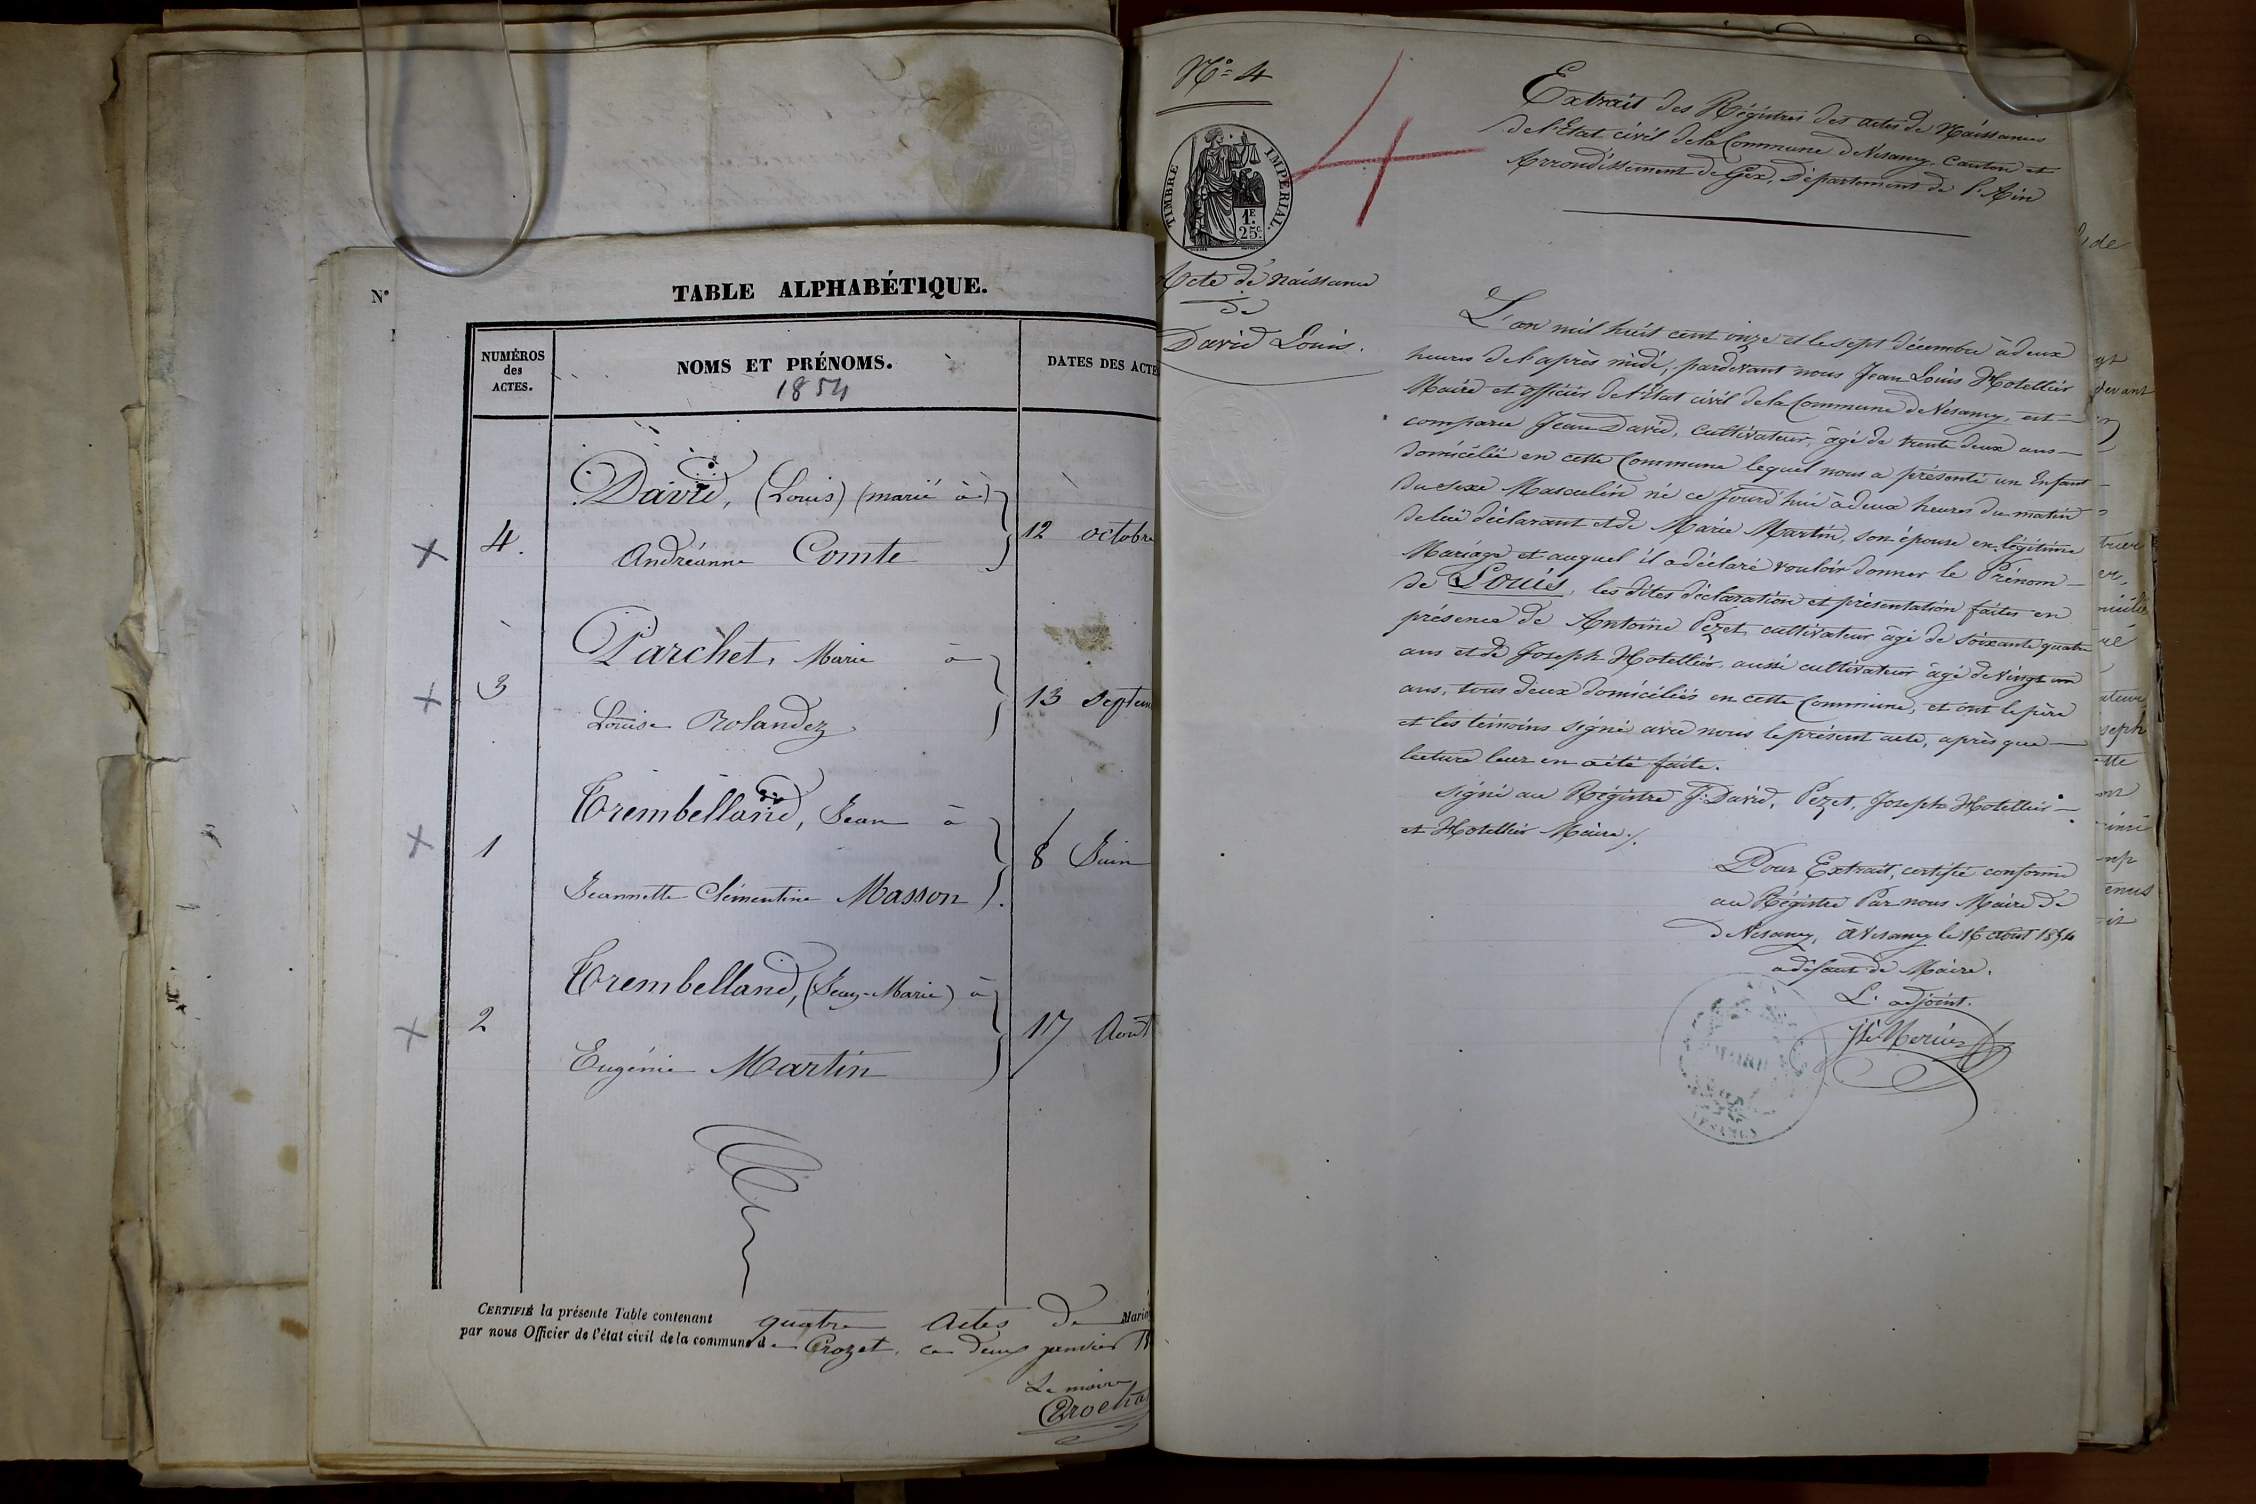 N°
TABLE ALPHABÉTIQUE.
NUMÉROS
des
ACTES.
NOMS ET PRÉNOMS.
1854
DATES DES ACTE
David, (Louis) (marié à)
4.
12 octobre
Andréanne Comte
Parchet, Marie à
3
13 Septem
Louise Rolandez
Trembelland, Jean à
1
8 Juin
Jeannette Clémentine Masson
Trembelland, (Jean-Marie) à
2
17 Août
Eugénie Martin
CERTIFIÉ la présente Table contenant quatre actes de Maria
par nous Officier de l'état civil de la commune de Crozet, ce deux janvier
Le maire
N° 4
4
TIMBRE IMPÉRIAL.
1F
25c
Acte de naissance
de
David Louis.
Extrait des Régistres des actes de Naissances
de l'Etat civil de la Commune de Vesancy, Canton et
Arrondissement de Gex, Département de l'Ain
L'an mil huit cent onze et le sept décembre à deux
heures de l'après midi, pardevant nous Jean Louis Hotellier
Maire et officier de l'état civil de la Commune de Vesancy, est
comparu Jean David, cultivateur, âgé de trente deux ans
domicilié en cette Commune lequel nous a présenté un Enfant
du sexe Masculin né ce jourd'hui à deux heures du matin
de lui déclarant et de Marie Martin, son épouse en légitime
Mariage et auquel il a déclaré vouloir donner le Prénom
de Louis, les dites déclaration et présentation faites en
présence de Antoine Pezet cultivateur âgé de soixante quatre
ans et de Joseph Hotellier aussi cultivateur âgé de vingt un
ans, tous deux domiciliés en cette Commune, et ont le père
et les témoins signé avec nous le présent acte, après que
lecture leur en a été faite.
Signé au Régistre J. David, Pezet, Joseph Hotellier
et Hotellier Maire ./.
Pour Extrait, certifié conforme
au Régistre Par nous Maire de
de Vesancy, à Vesancy le 16 août 1854
à défaut de Maire.
L'adjoint.
VESANCY